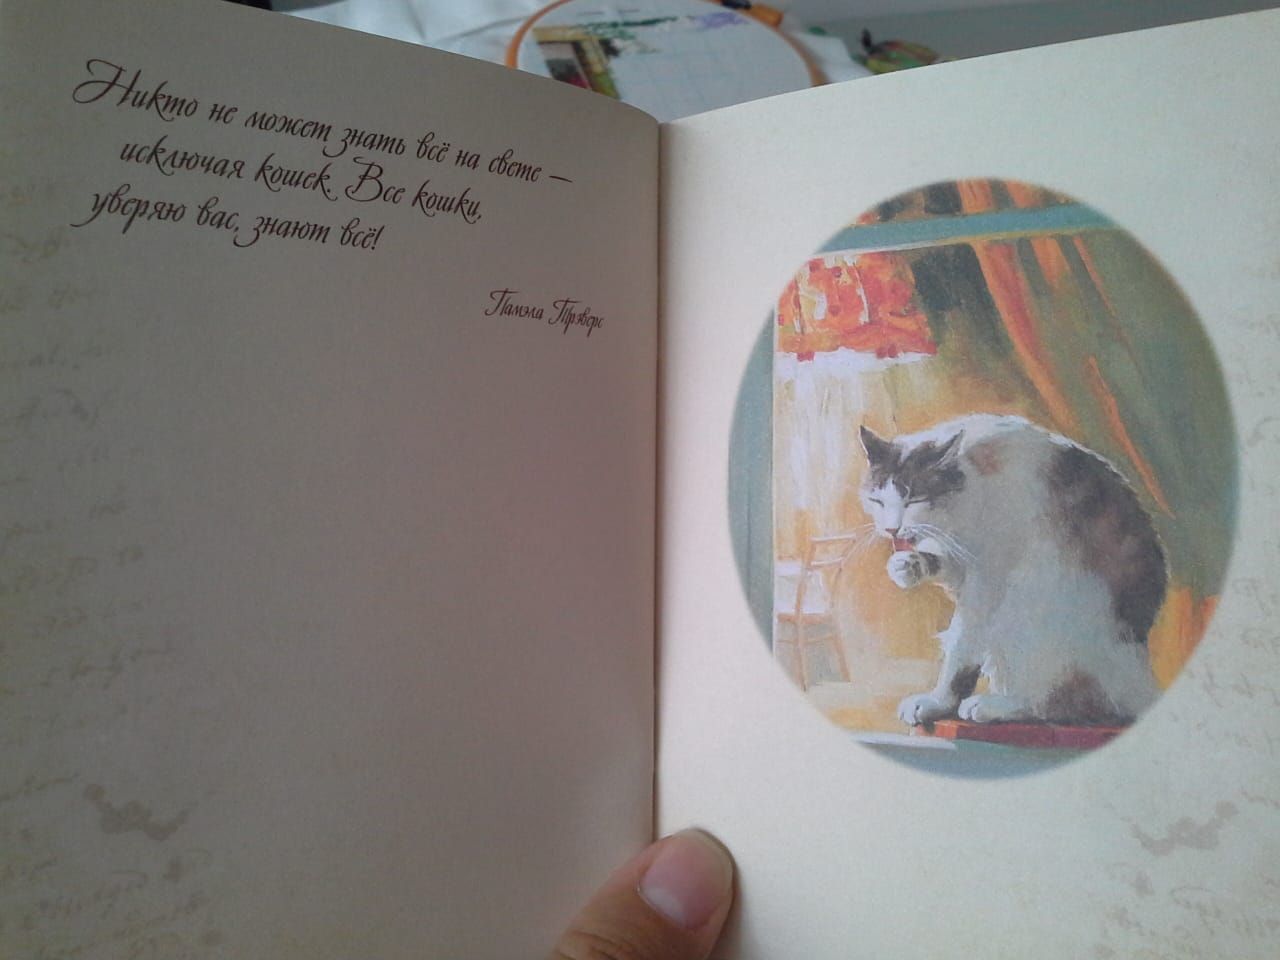 Никто не может знать всё на свете –
исключая кошек. Все кошки,
уверяю вас, знают всё!
Памэла Трэверс